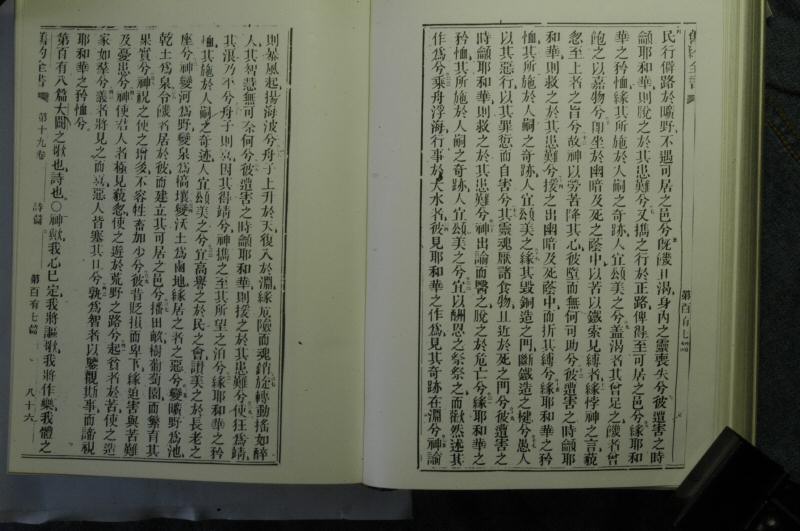 舊約全書
第百有七篇
民行僻路於曠野不遇可居之邑兮旣饑且渴身內之靈喪失兮彼遭害之時
龥耶和華則脫之於其患難兮又攜之行於正路俾得至可居之邑兮緣耶和
華之矜恤緣其所施於人嗣之奇跡人宜頌美之兮蓋渴者其曾足之饑者曾
飽之以嘉物兮卽坐於幽暗及死之蔭中以苦以鐵索見縛者緣悖神之言藐
忽至上者之旨兮故神以勞苦降其心彼墮而無何可助兮彼遭害之時龥耶
和華則救之於其患難兮援之出幽暗及死蔭中而折其縛兮緣耶和華之矜
恤其所施於人嗣之奇跡人宜頌美之緣其毀銅造之門斷鐵造之楗兮愚人
以其惡行以其罪愆而自害兮其靈魂厭諸食物且近於死之門兮彼遭害之
時龥耶和華則救之於其患難兮神出諭而醫之脫之於危亡兮緣耶和華之
矜恤其所施於人嗣之奇跡人宜頌美之兮宜以酬恩之祭祭之而歡然述其
作爲兮乘舟浮海行事於大水者彼見耶和華之作爲見其奇跡在淵兮神諭
則暴風起揚海波兮舟子上升於天復入於淵緣危險而魂銷旋轉動搖如醉
人其智慧無可奈何兮彼遭害之時龥耶和華則援之於其患難兮使狂爲靖
其浪乃平兮舟子則喜因其得靖兮神攜之至其所望之泊兮緣耶和華之矜
恤其施於人嗣之奇迹人宜頌美之兮宜高譽之於民之會讚美之於長老之
座兮神變河爲野變泉爲槁壤變沃土爲鹵地緣居之者之惡兮變曠野爲池
乾土爲泉令饑者居於彼而建立其可居之邑兮播田畝樹葡萄園而繁育其
果實兮神祝之使之增多不容牲畜加少兮彼昔貶損而卑下緣迫害與苦難
及憂患兮神使君人者極見藐忽使之遊於荒野之路兮起貧者於苦使之造
家如羣兮義者將見之而喜惡人皆塞其口兮孰爲智者以鑒觀斯事而諳視
耶和華之矜恤兮
第百有八篇大闢之歌也詩也〇神歟我心已定我將謳歌我將作樂我體之
舊約全書
第十九卷
詩篇
第百有七篇
八十六